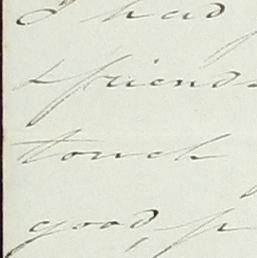 I had
& friend
touch
good, p